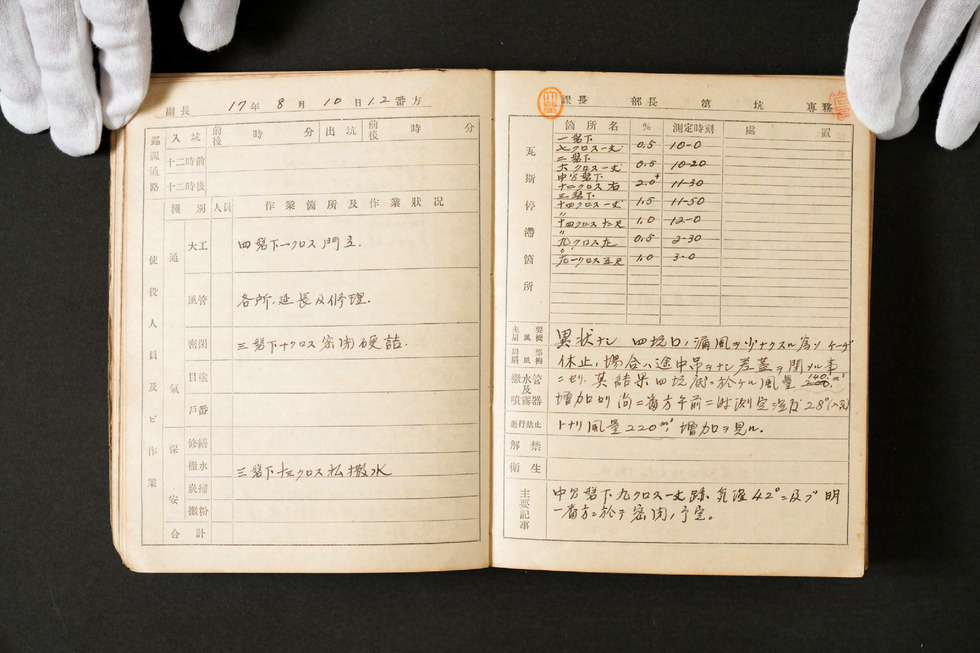 副長 17年 8月 10日 1.2番方
巡視通路 入坑 前後 時 分 出坑 前後 時 分
十二時前
十二時後
使役人員及ビ作業
種別 人員 作業箇所及作業狀況
通氣
大工 四盤下一クロス門立.
風管 各所.延長及修理.
密閉 三盤下十クロス密閉硬詰.
目塗
戸番
保安
修繕
撒水 三盤下十三クロス払撒水
炭掃
撒粉
合計
課長 部長 第 坑 專務
瓦斯停滯箇所
箇所名 % 測定時刻 處置
一盤下
七クロス一丈 0.5 10-0
二盤下
六クロス一丈 0.5 10-20
中分盤下
十二クロス右 2.0+ 11-30
三盤下
十四クロス一丈 1.5 11-50
〃
十四クロス 1.0 12-0
〃
九クロス左 0.5 2-30
〃
九一クロス 1.0 3-0
主要扇風機 異状ナシ 四坑口ノ漏風ヲ少ナクスル為メ ケーヂ
局部扇風機 休止ノ場合ハ途中吊ヲナシ差蓋ヲ閉メル事
撒水管及噴霧器 ニセリ.其結果四坑底ニ於ケル風量 140m³
増加セリ 尚二番方午前二時測定温度28°
進行禁止 トナリ風量220m³ノ増加ヲ見ル.
解禁
衛生
主要記事 中分盤下九クロス一丈跡.気温42°ニ及ブ 明
一番方ニ於テ密閉ノ予定。